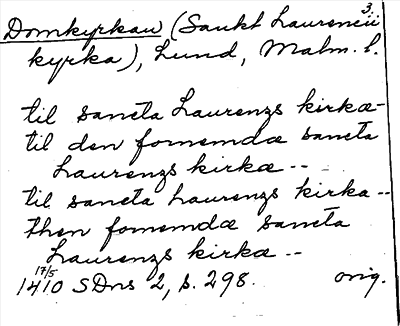 3.
Domkyrkan (Sankt Laurencii
kyrka), Lund, Malm. l.
til sancta Laurenzs kirkæ-
til den fornemdæ sancta
Laurenzs kirkæ --
til sancta Laurenzs kirka --
then fornemdæ sancta
Laurenzs kirkæ --
17/5
1410 SDns 2, s. 298. orig.